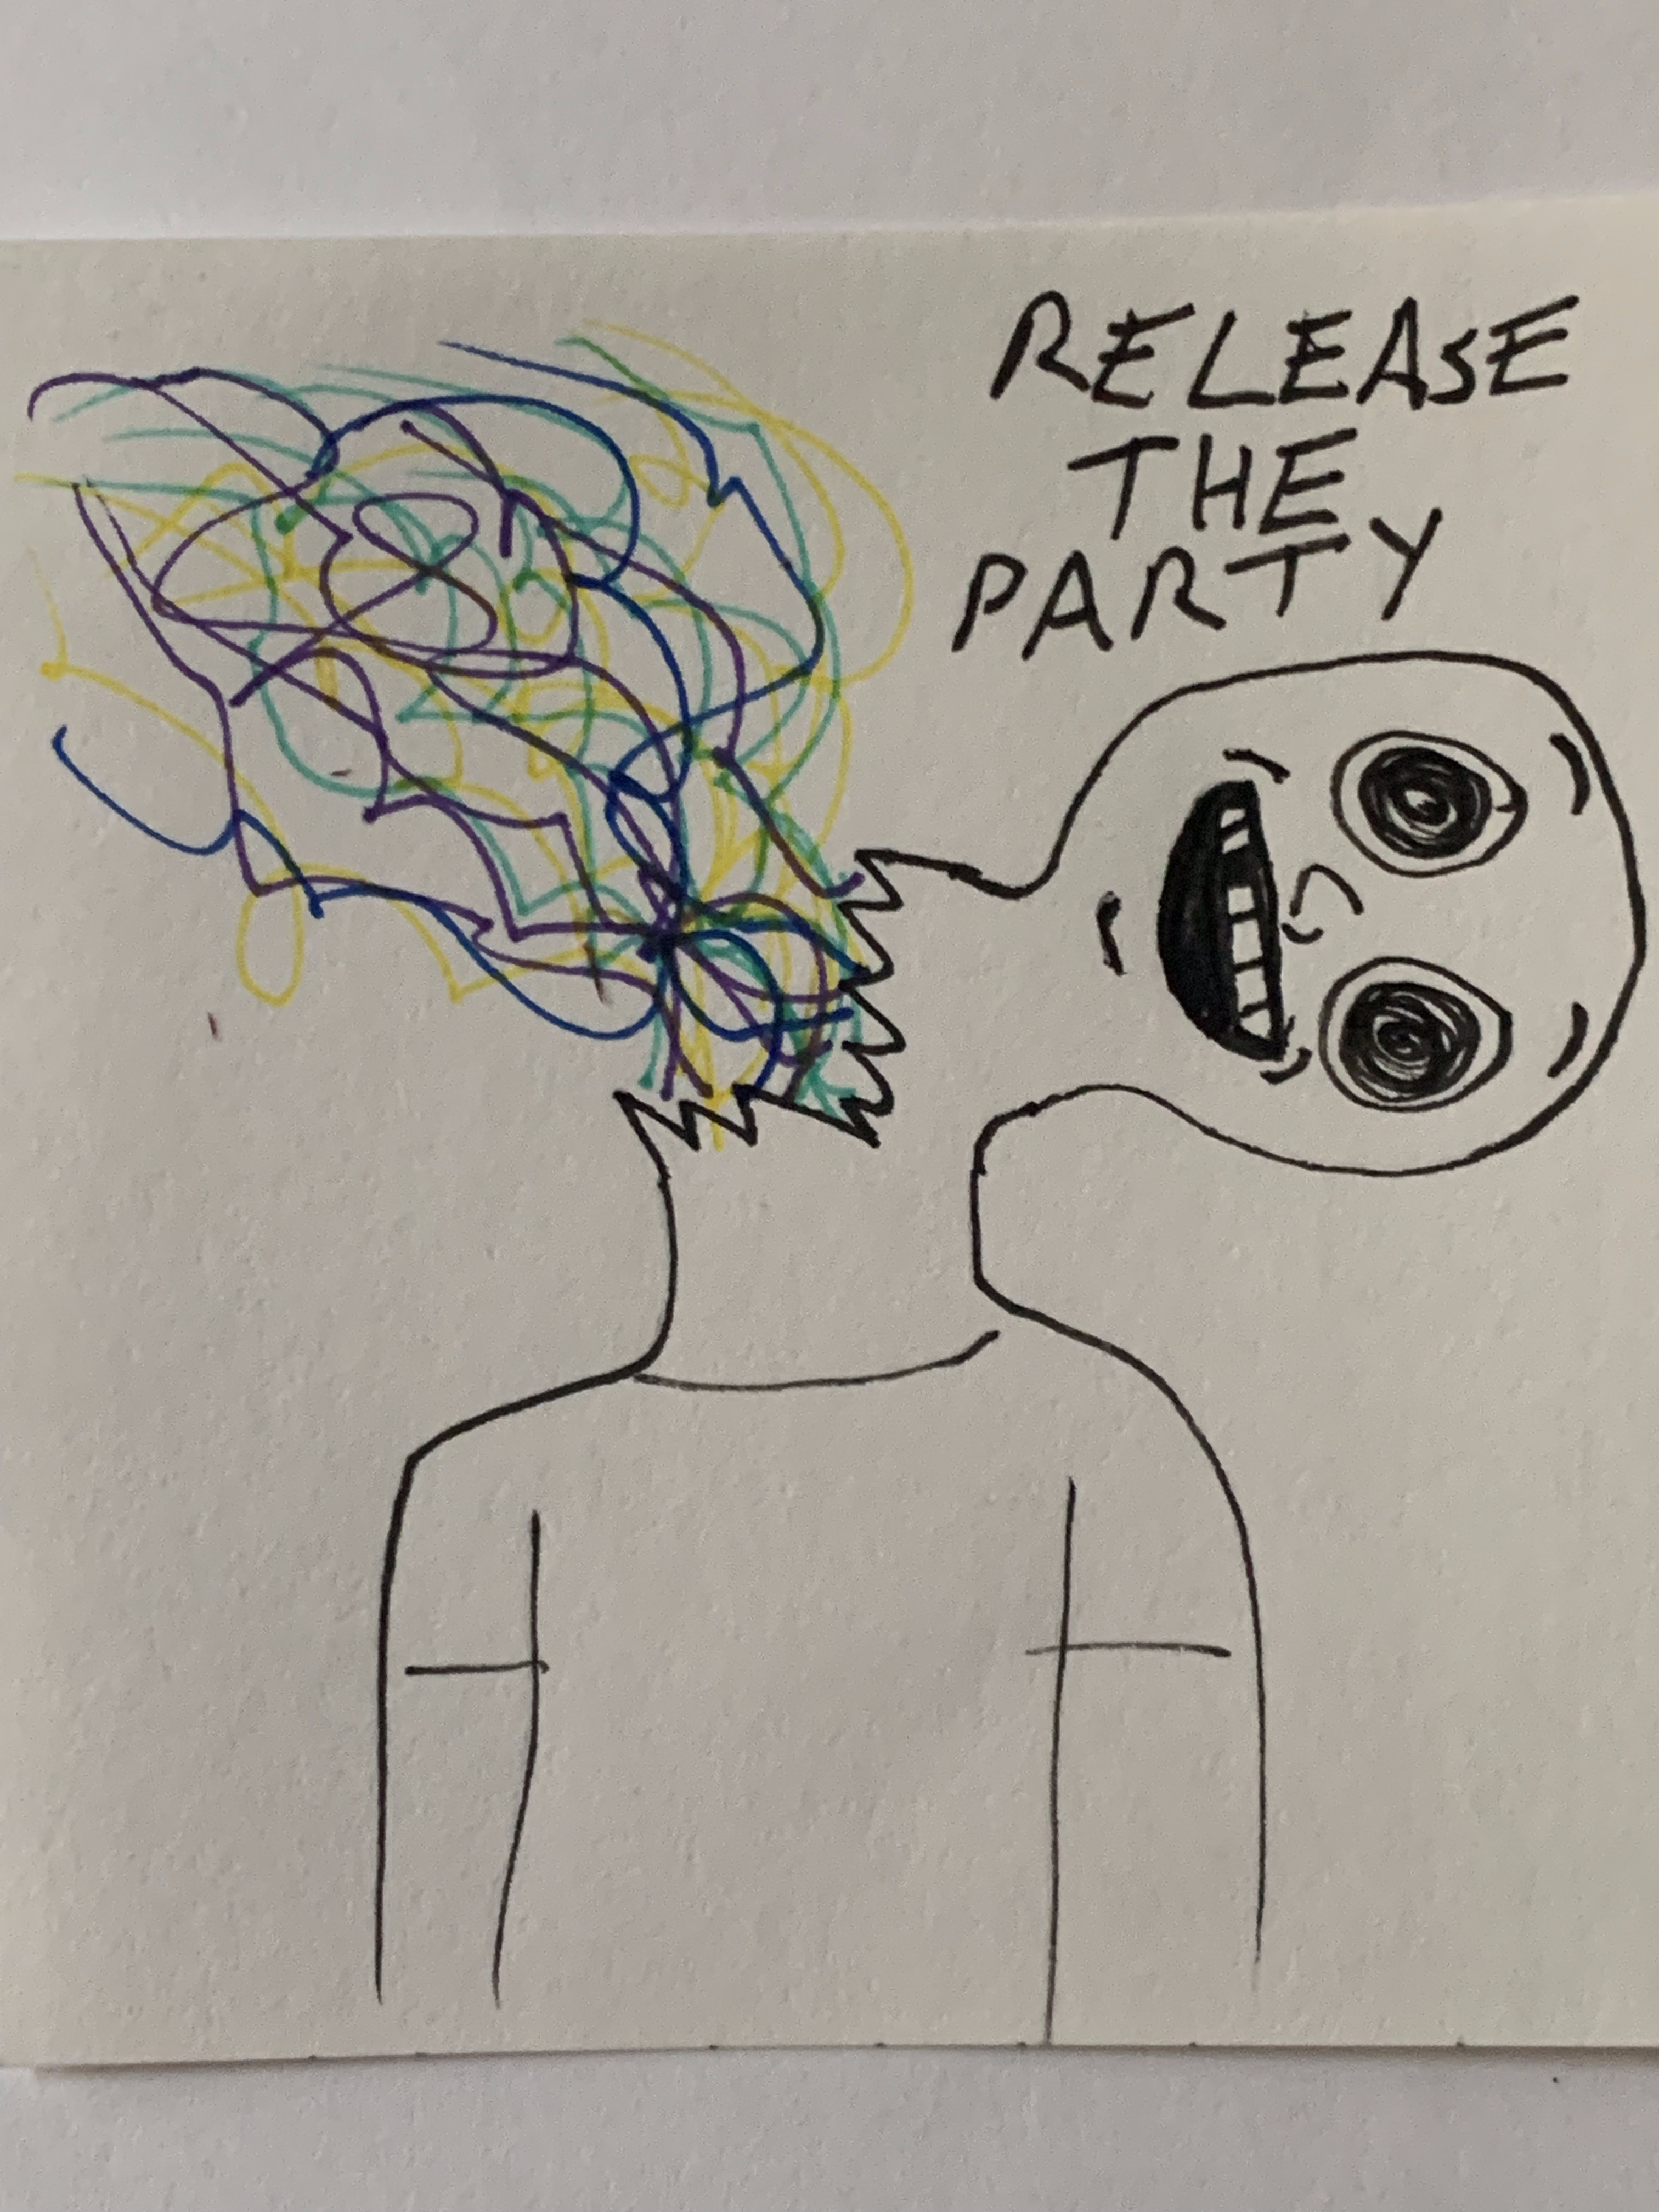 RELEASE
THE
PARTY